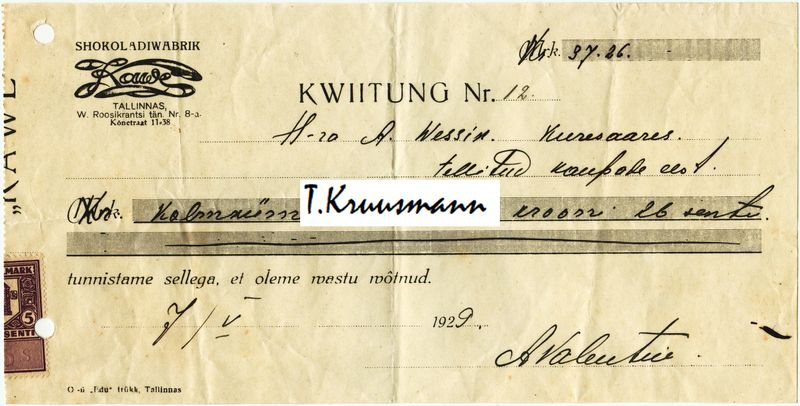 SHOKOLADIWABRIK
Kawe
TALLINNAS,
W. Roosikrantsi tän. Nr. 8-a.
Kõnetraat 11-38
„KAWE
Mrk. 37.26.
KWIITUNG Nr. 12.
H-ra A. Wessik. Kuresaares.
tellitud kaupade eest.
Mrk. Kolmküm
T.Kruusmann
krooni 26 senti.
tunnistame sellega, et oleme wastu wõtnud.
7/V 1929.
MARK
5
SENTI
A Valentin.
O-ü „Edu" trükk, Tallinnas